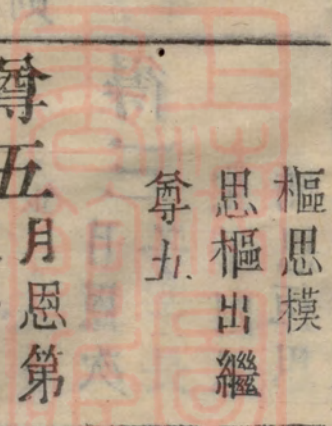 樞思模
思樞出繼
尊五
尊五月恩第